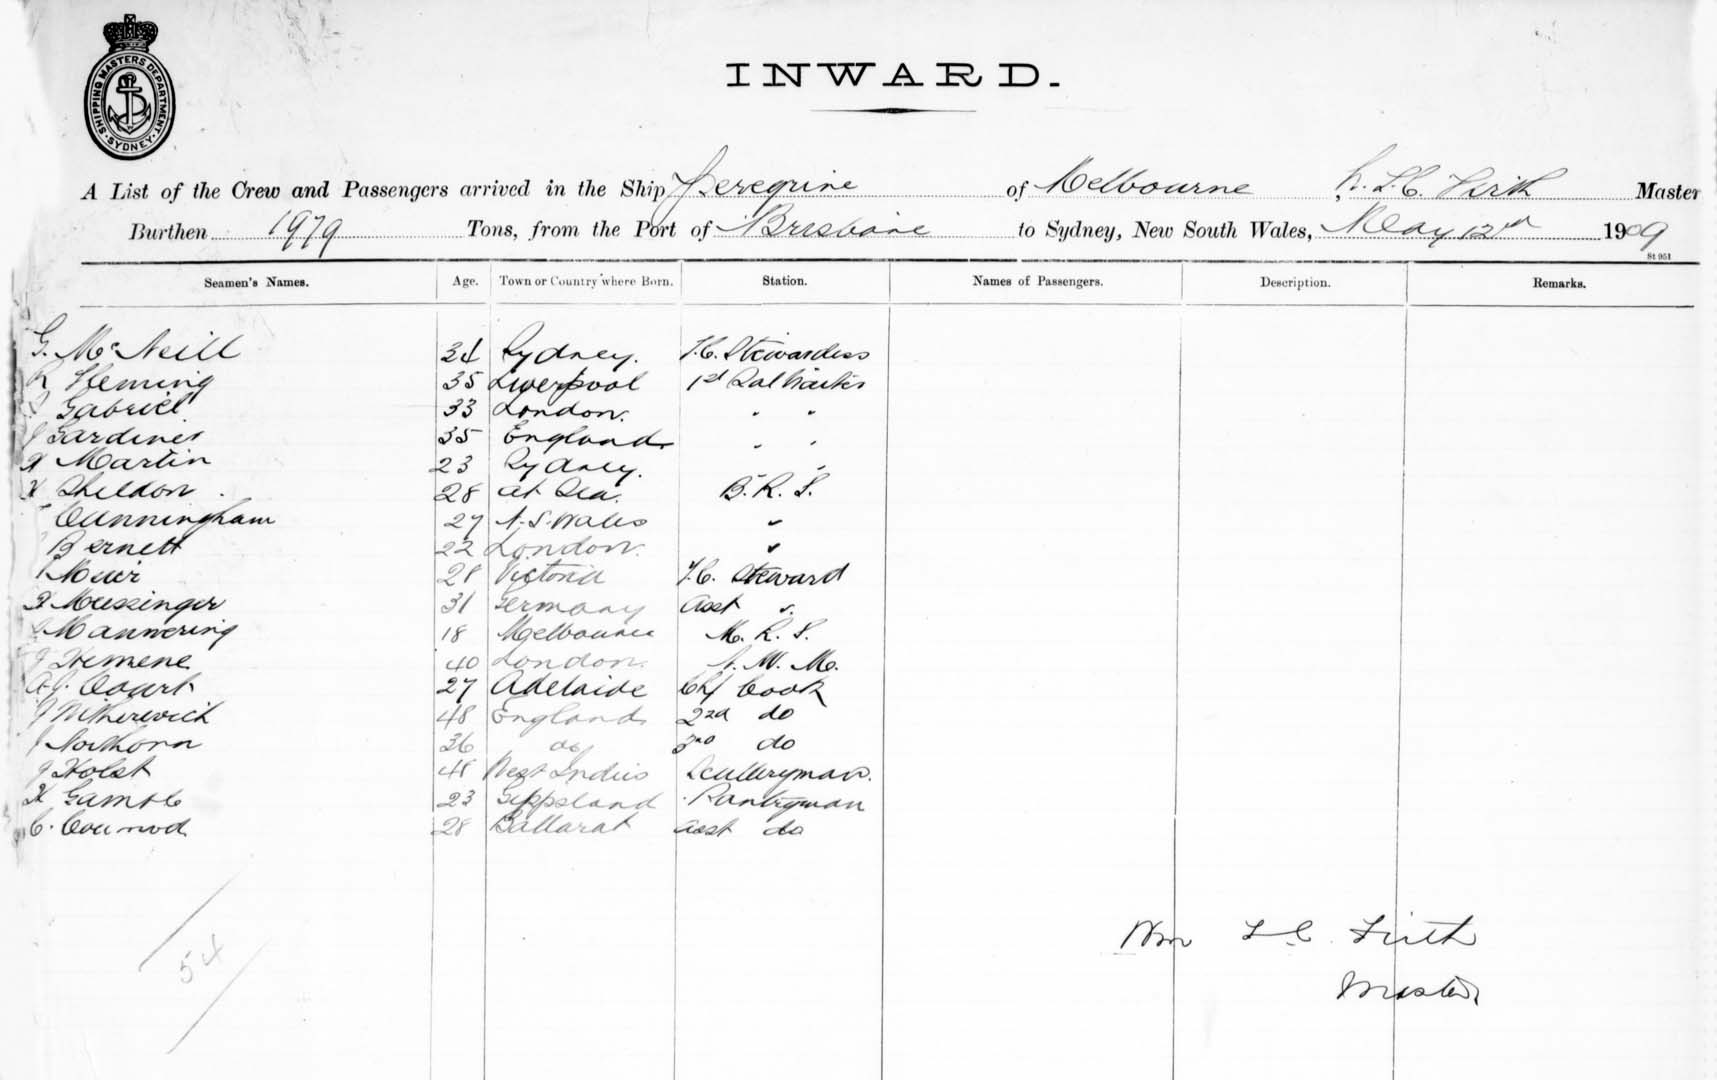 SHIPPING MASTERS DEPARTMENT. SYDNEY.
INWARD.
A List of the Crew and Passengers arrived in the Ship Peregrine of Melbourne, Firth Master
Burthen 1979 Tons, from the Port of Brisbane to Sydney, New South Wales, May 12th 1909
St 951
Seamen's Names. Age. Town or Country where Born. Station. Names of Passengers. Description. Remarks.
G. McNeill 34 Sydney. F.C. Stewardess
R Fleming 35 Liverpool 1st Sal Waiter
Gabriel 33 London. " "
J Gardiner 35 England " "
Martin 23 Sydney. "
H Sheldon 28 at Sea. B. R. S.
Cunningham 27 N. S. Wales "
Bernett 22 London. "
Muir 28 Victoria F.C. Steward
Meissinger 31 Germany Asst "
Mannering 18 Melbourne M. R. S.
J 40 London.
A.J. Court 27 Adelaide Chf Cook
J Witherwick 48 England 2nd do
J Northorn 36 do 3rd do
J Holst 48 West Indies Sculleryman.
H Gamble 23 Gippsland Pantryman
C. 28 Ballarat Asst do
54
Wm Firth
Master